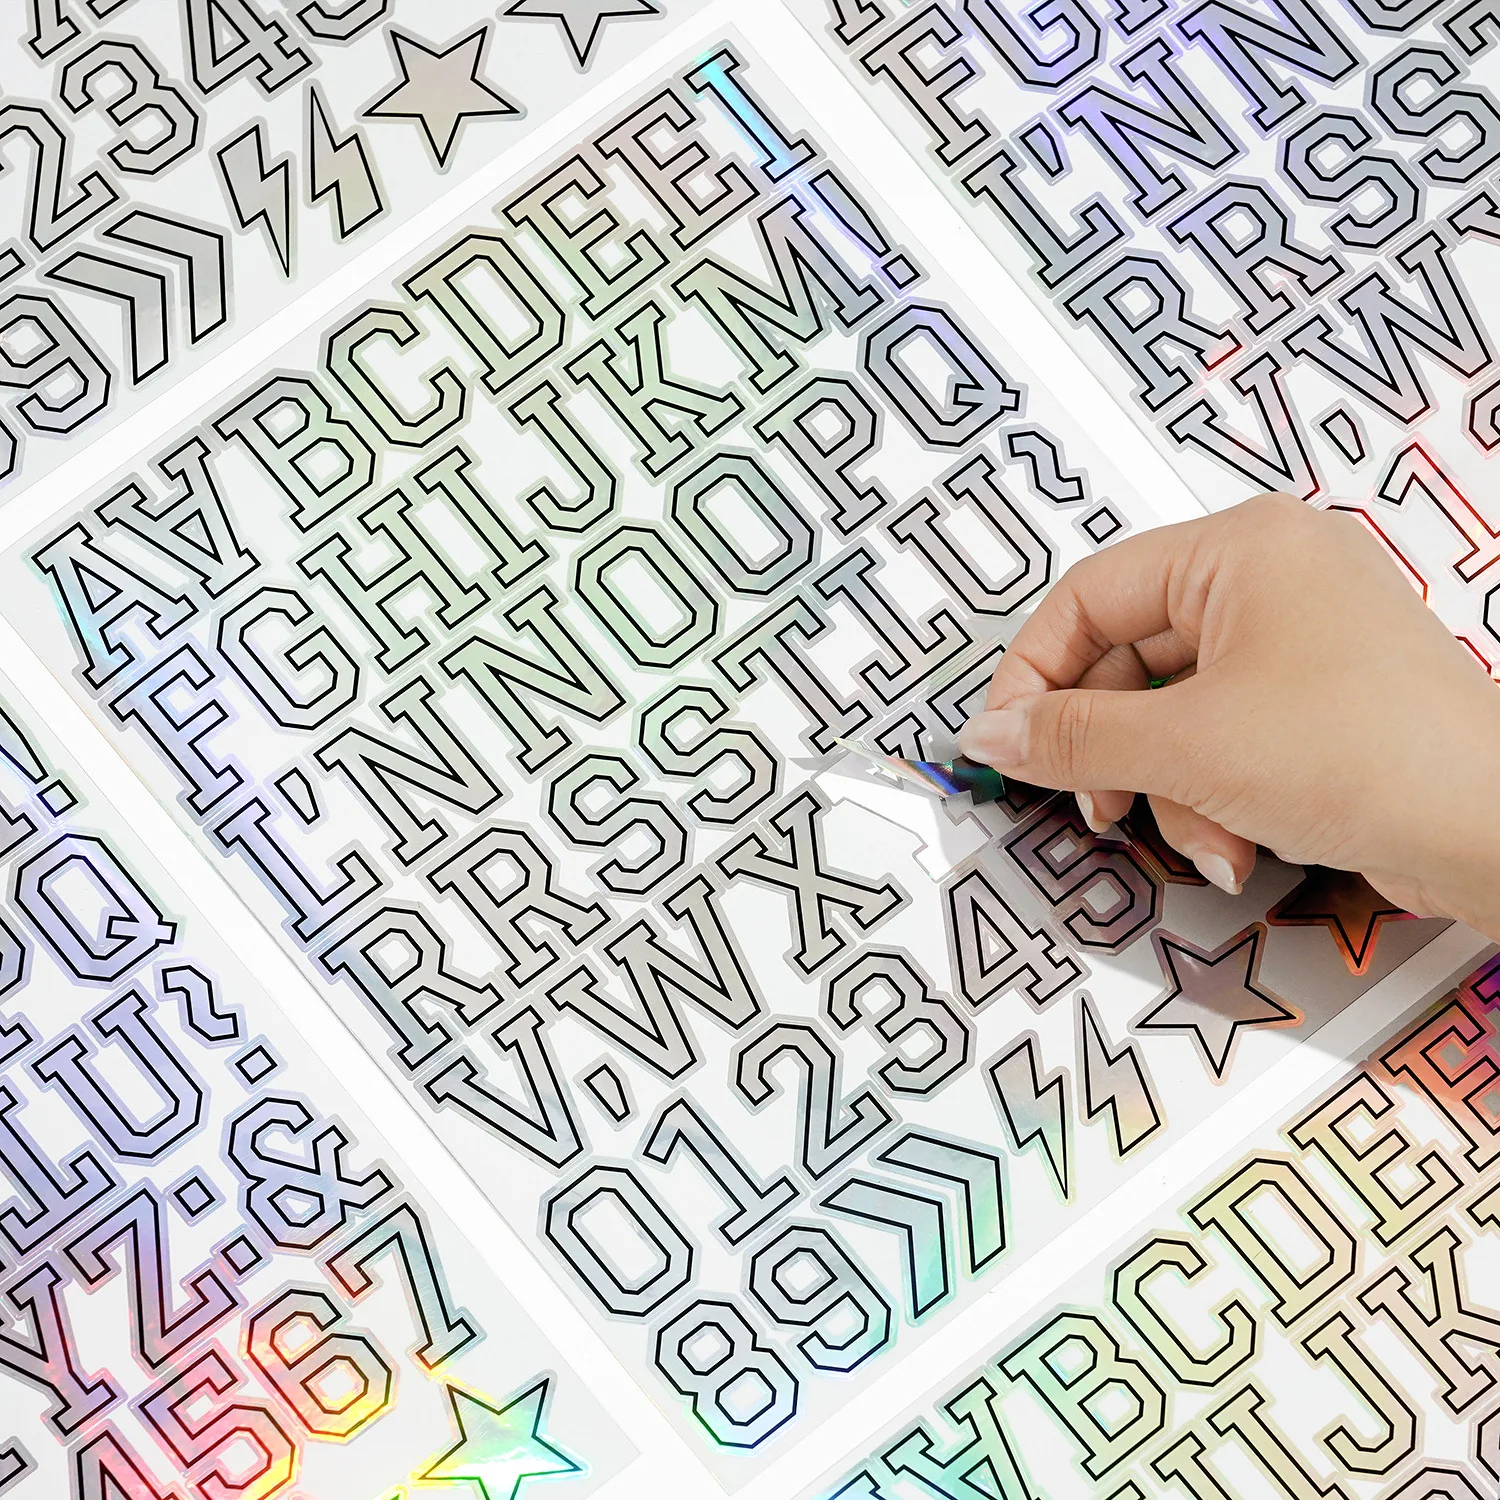 AABCDEEI
FGHIJKM!
L'NNOOPQ
RRSSTLU?
V,WX
012345
89
2345
9
FG
L'NN
RRSS
V,W
1
!
Q
LU?
YZ:&
4567
ABCDEE
HIJK